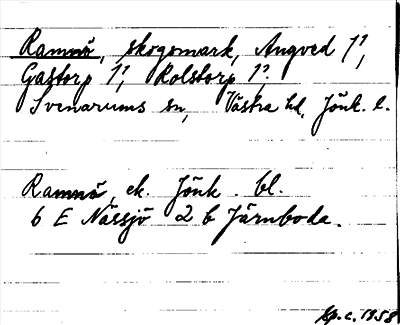 Ramnö, skogsmark, Angved 1²,
Gastorp 1², Rolstorp 1².
Svenarums sn, Västra hd, Jönk. l.
Ramnö, ek. Jönk. bl.
6 E Nässjö 2 b Järnboda.
Rp.c. 1958